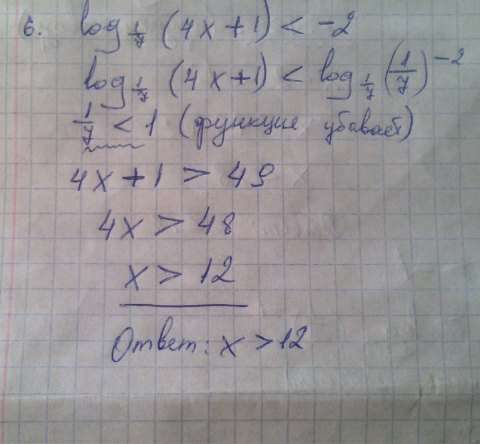 6. log_{1/7} (4x+1) < -2
log_{1/7} (4x+1) < log_{1/7} (1/7)^{-2}
1/7 < 1 (функция убывает)
4x+1 > 49
4x > 48
x > 12
Ответ: x > 12